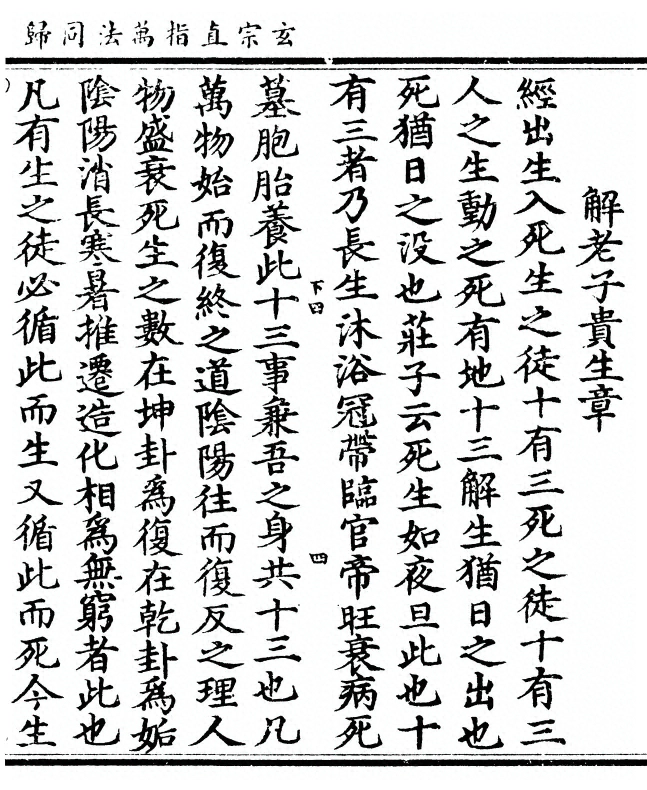 玄宗直指萬法同歸
解老子貴生章
經出生入死生之徒十有三死之徒十有三
人之生動之死有地十三解生猶日之出也
死猶日之没也莊子云死生如夜旦此也十
有三者乃長生沐浴冠帶臨官帝旺衰病死
下四
四
墓胞胎養此十三事兼吾之身共十三也凡
萬物始而復終之道陰陽往而復反之理人
物盛衰死生之數在坤卦爲復在乾卦爲姤
陰陽消長寒暑推遷造化相爲無窮者此也
凡有生之徒必循此而生又循此而死今生